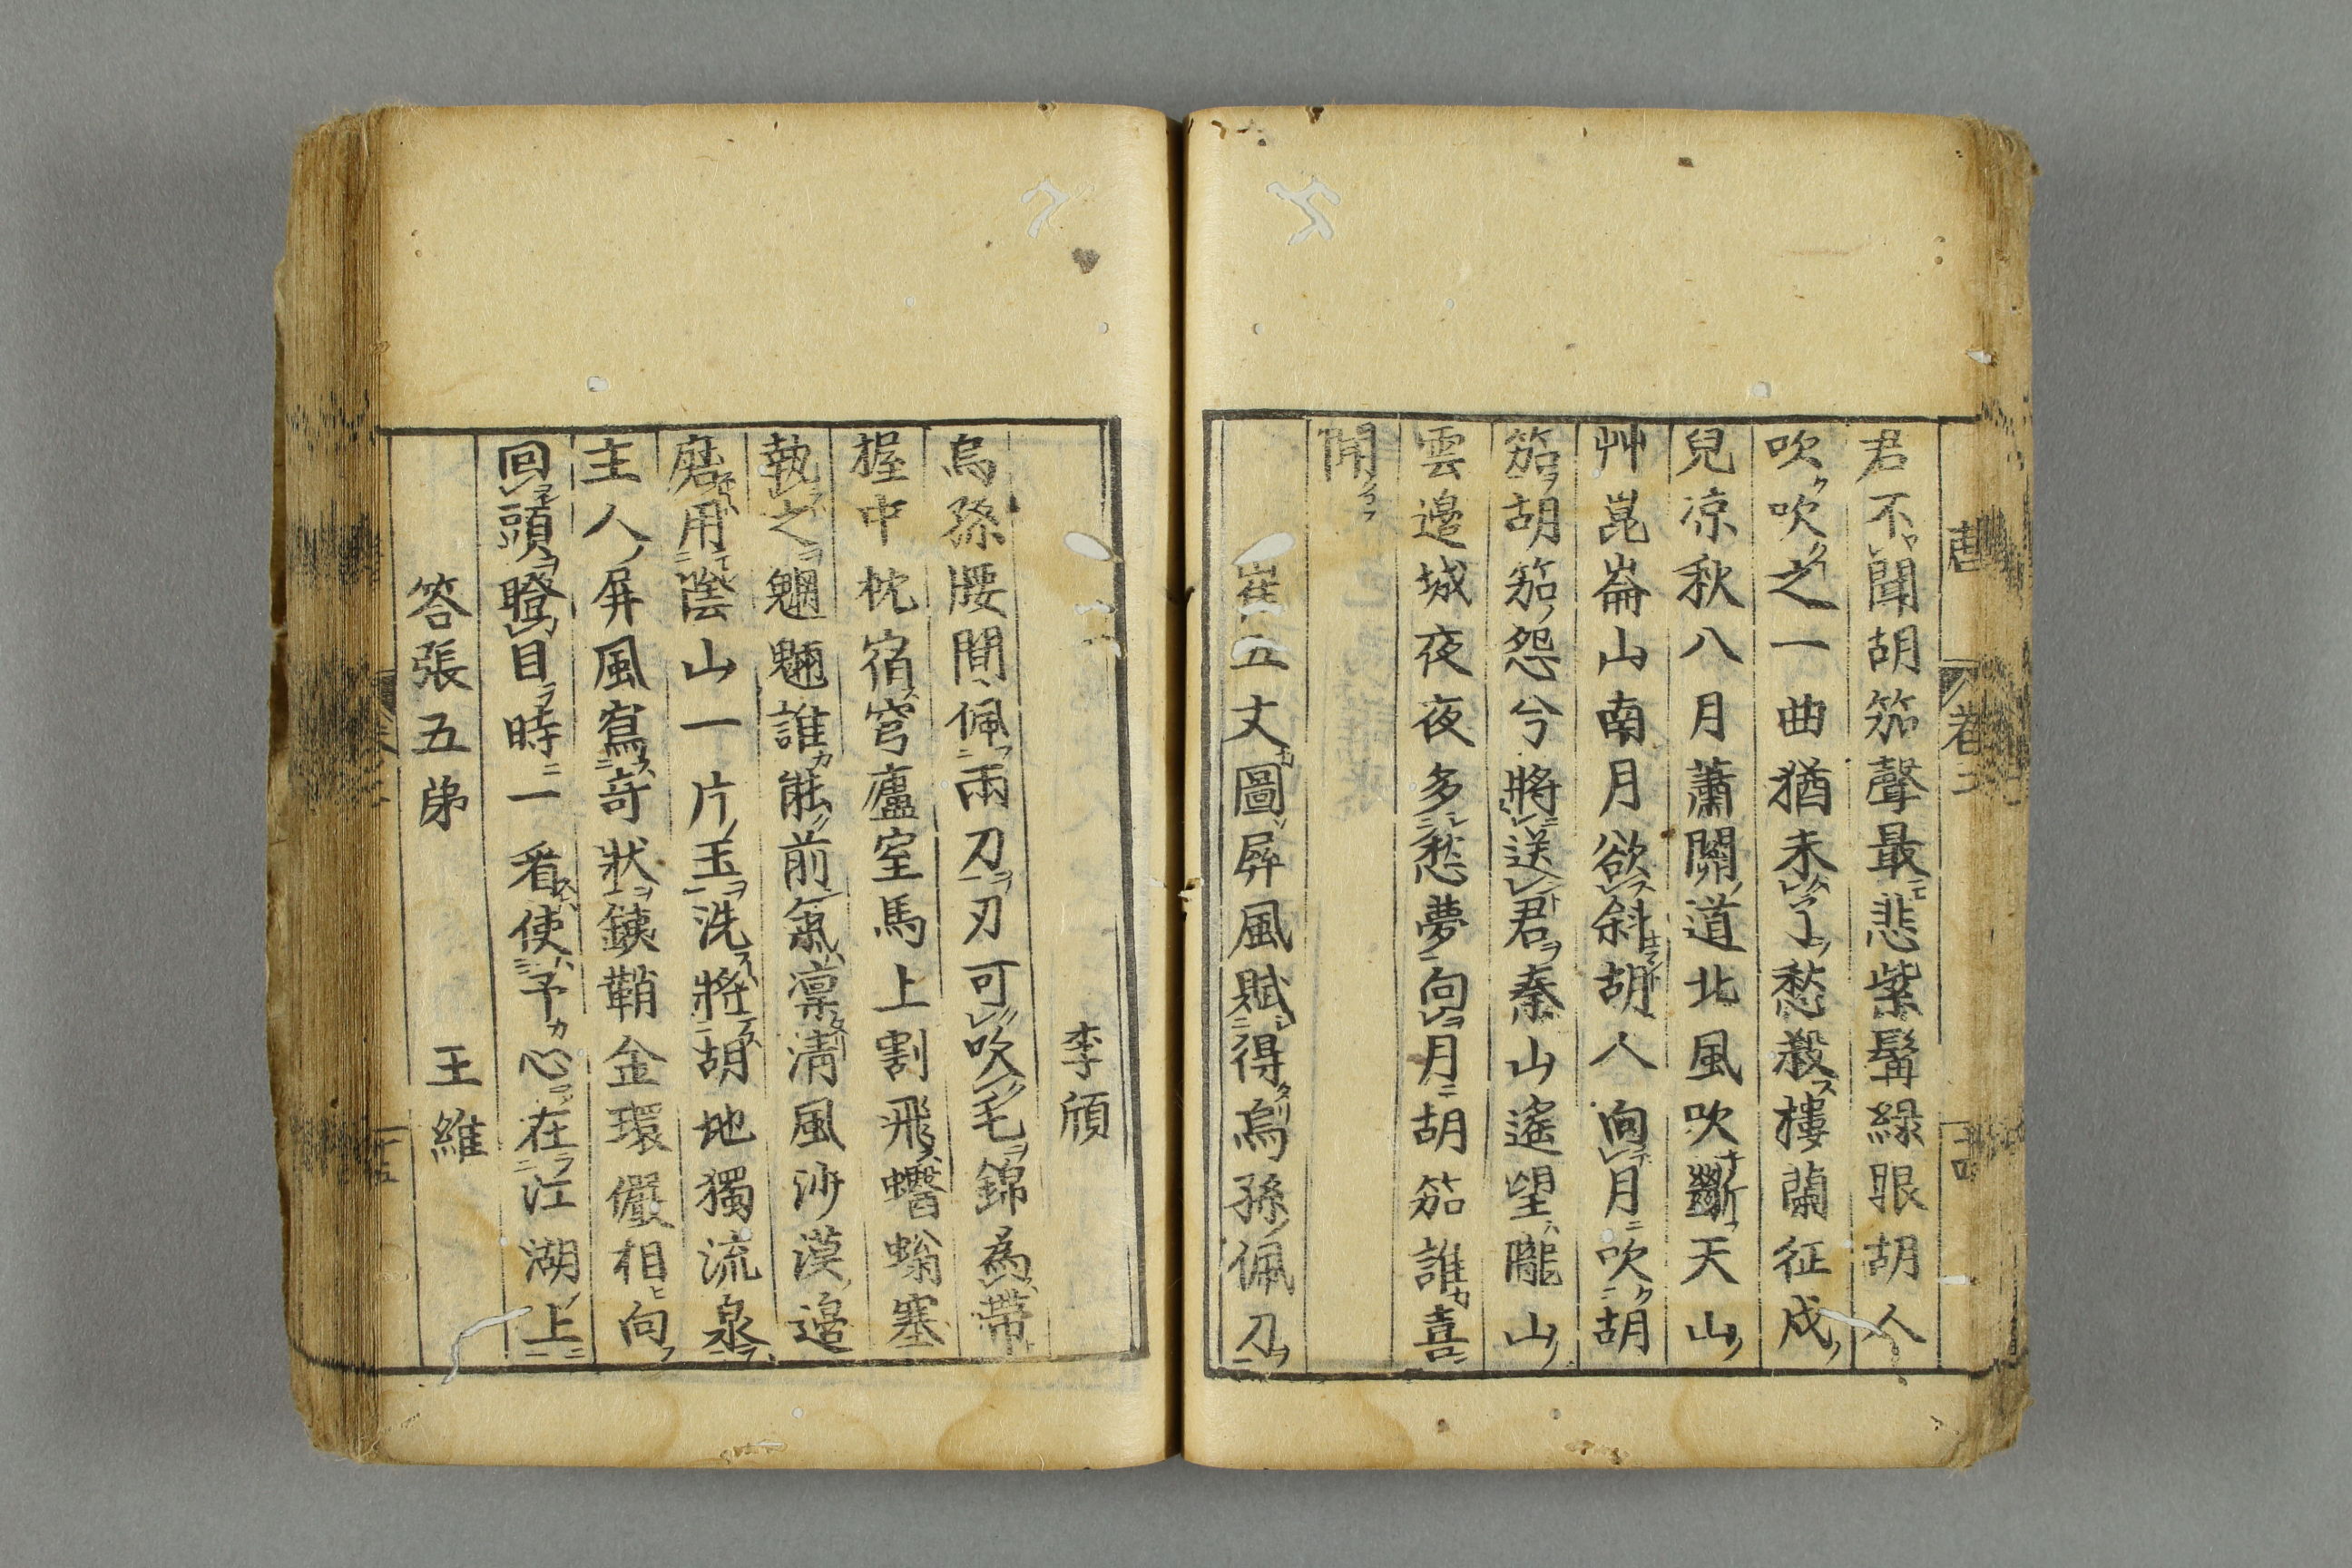 君不聞胡笳聲最悲紫髯緑眼胡人
吹吹之一曲猶未了愁殺樓蘭征戍
兒涼秋八月蕭關道北風吹斷天山
艸崑崙山南月欲斜胡人向月吹胡
笳胡笳怨兮將送君秦山遙望隴山
雲邊城夜夜多愁夢向月胡笳誰喜
聞
崔五丈圖屏風賦得烏孫佩刀
李頎
烏孫腰間佩兩刀刃可吹毛錦為帶
握中枕宿穹廬室馬上割飛螱螉塞
執之魍魎誰能前氣凜清風沙漠邊
磨用陰山一片玉洗將胡地獨流泉
主人屏風寫奇狀銕鞘金環儼相向
回頭瞪目時一看使予心在江湖上
答張五弟 王維